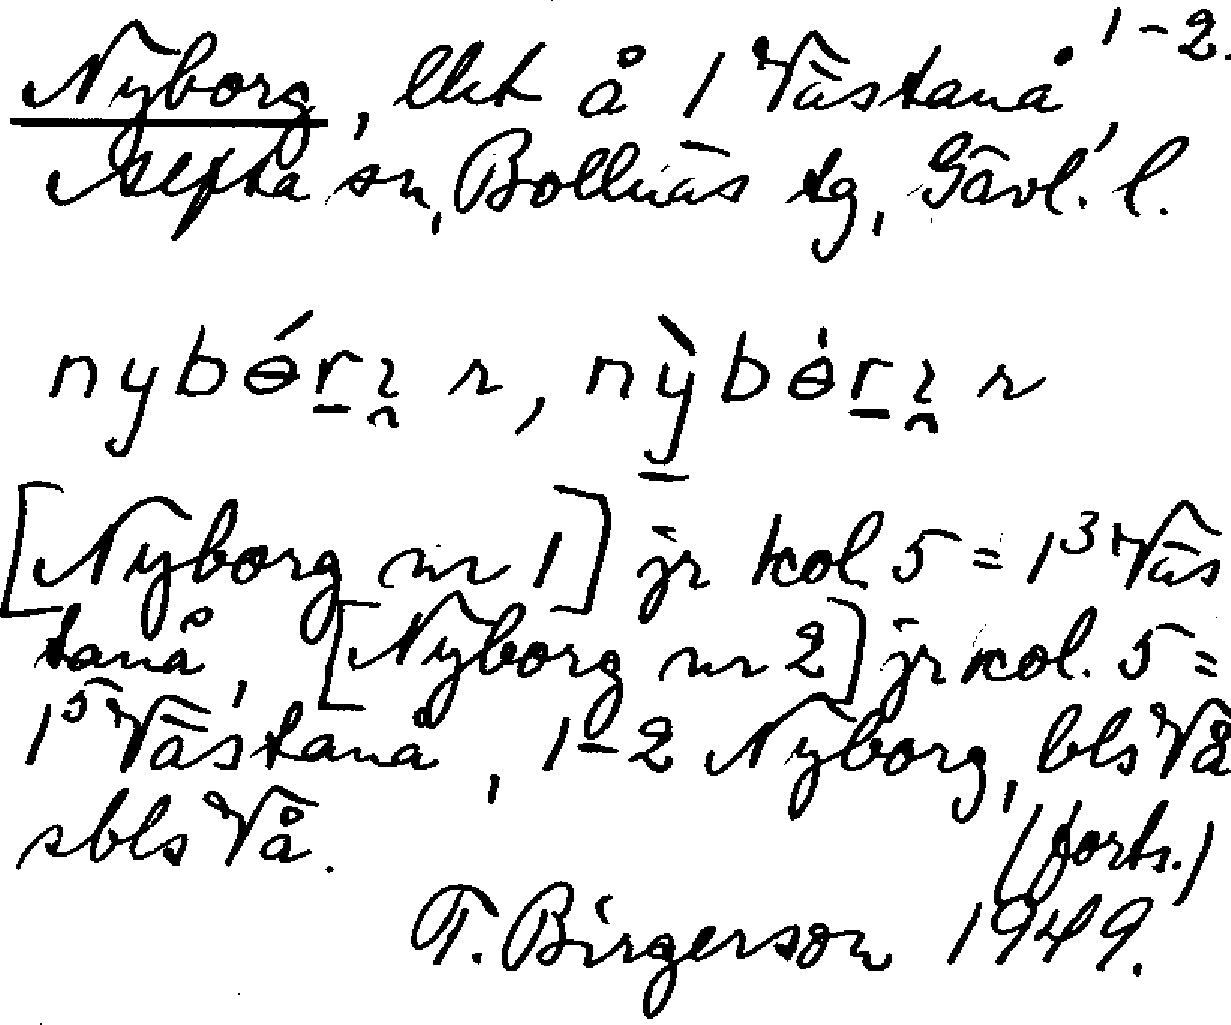 Nyborg, lht å 1 Västanå 1-2,
Alfta sn, Bollnäs tg, Gävl. l.
nybérɩ r, nỳbėrɩ r
[Nyborg nr 1] jr kol 5 = 1³ Väs
tanå, [Nyborg nr 2] jr kol. 5 =
1⁵ Västanå, 1-2 Nyborg, bls Vå
sbls Vå.
(forts.)
T. Birgerson 1949.